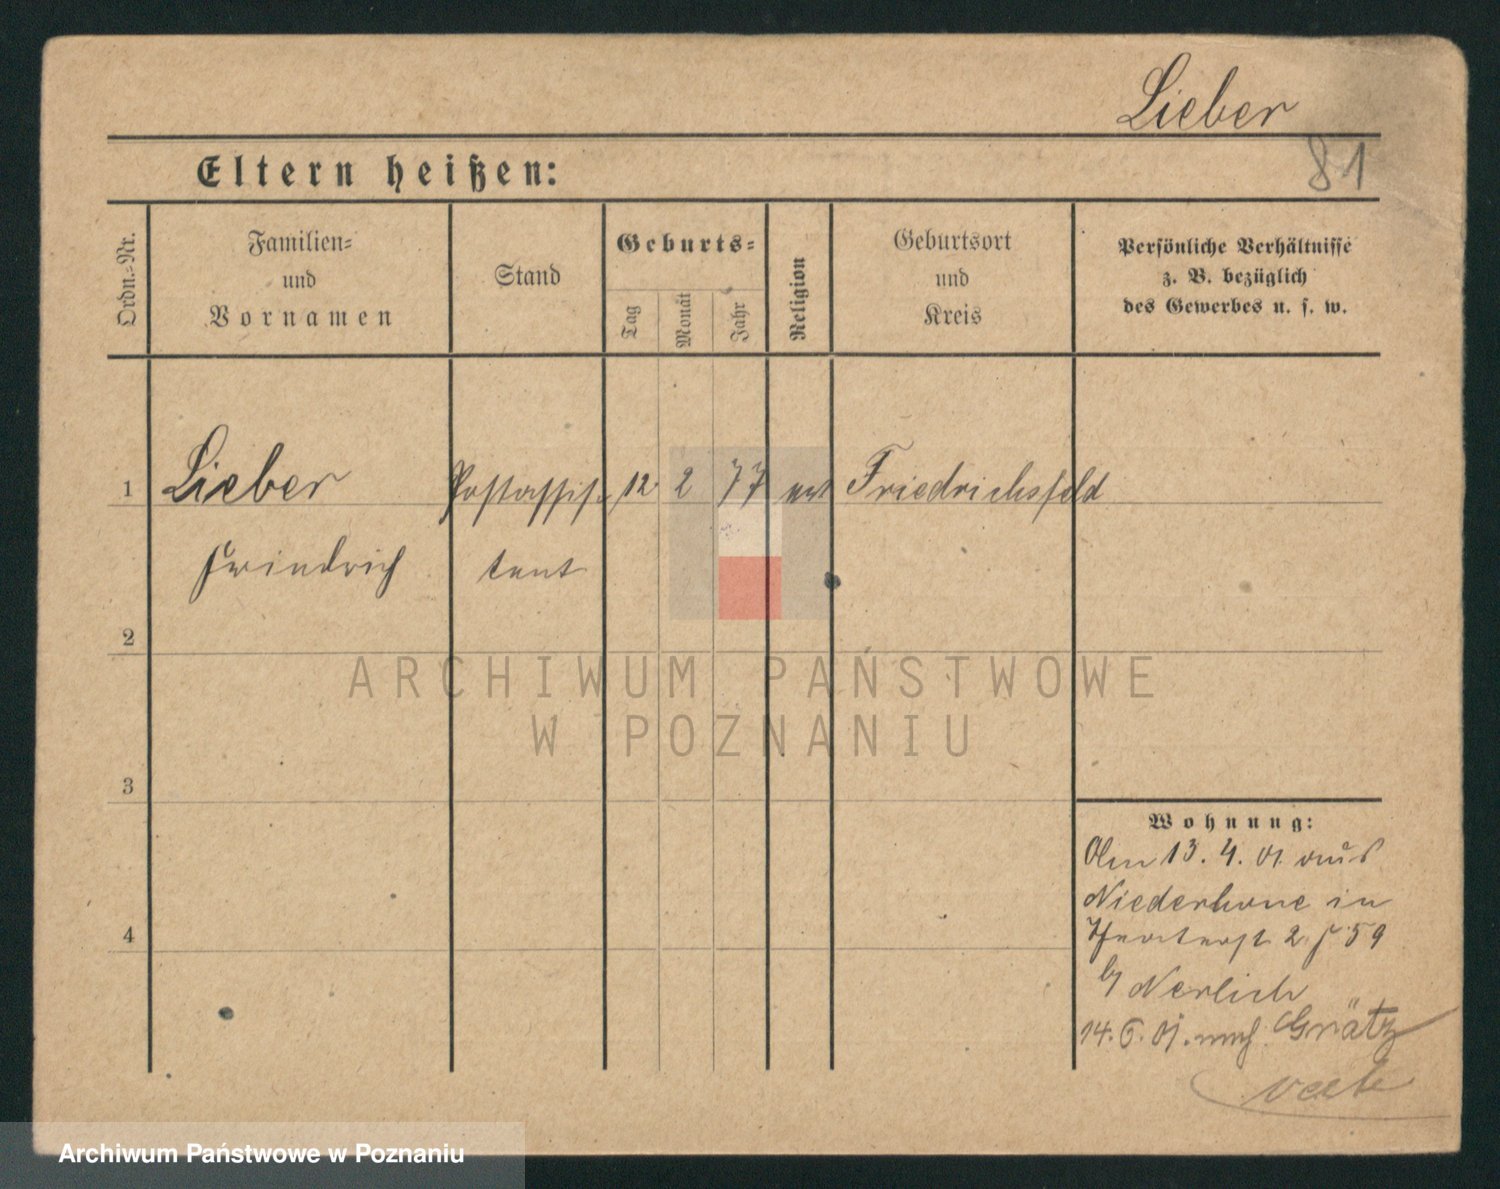 Lieber
81
Eltern heißen:
Ordn.-Nr.
Familien-
und
Vornamen
Stand
Geburts-
Tag
Monat
Jahr
Religion
Geburtsort
und
Kreis
Persönliche Verhältnisse
z. B. bezüglich
des Gewerbes u. s. w.
1 Lieber Postassis- 12 2 77 Friedrichsfeld
Friedrich tent
2
ARCHIWUM PAŃSTWOWE
W POZNANIU
3
4
Wohnung:
Am 13.4.01. aus
Niederhone in
2 59
b/ Nerlich
14.6.01. nach Grätz
Archiwum Państwowe w Poznaniu